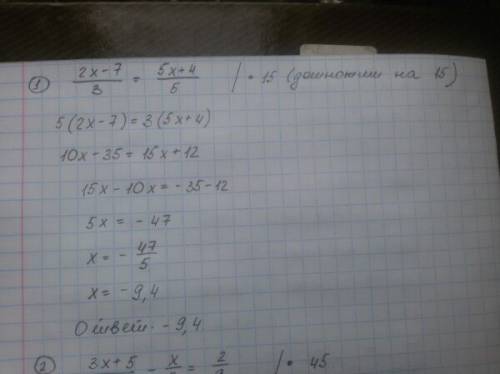 ① (2x-7)/3 = (5x+4)/5 | · 15 (домножим на 15)
5(2x-7)=3(5x+4)
10x-35=15x+12
15x-10x=-35-12
5x = -47
x = -47/5
x = -9,4
Ответ: -9,4
② 3x+5 - x = 2 | · 45